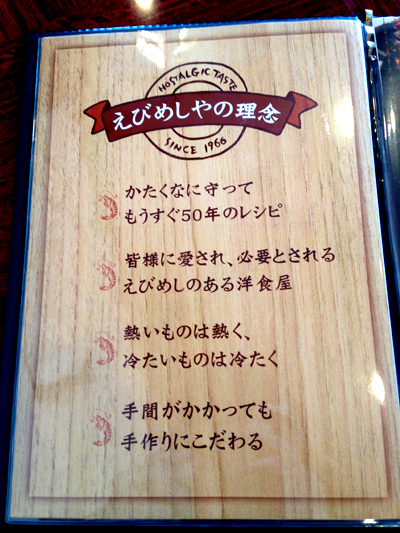 NOSTALGIC TASTE
えびめしやの理念
SINCE 1966
かたくなに守って
もうすぐ50年のレシピ
皆様に愛され、必要とされる
えびめしのある洋食屋
熱いものは熱く、
冷たいものは冷たく
手間がかかっても
手作りにこだわる